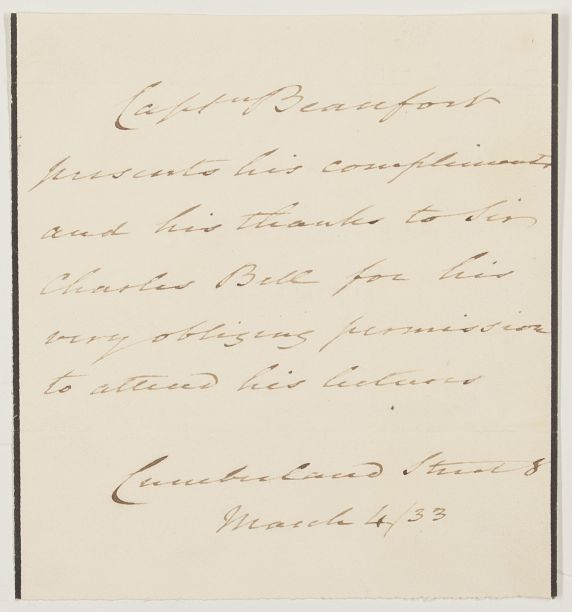 Captn Beaufort
presents his compliments
and his thanks to Sir
Charles Bell for his
very obliging permission
to attend his lectures
Cumberland Street 8
March 4/33